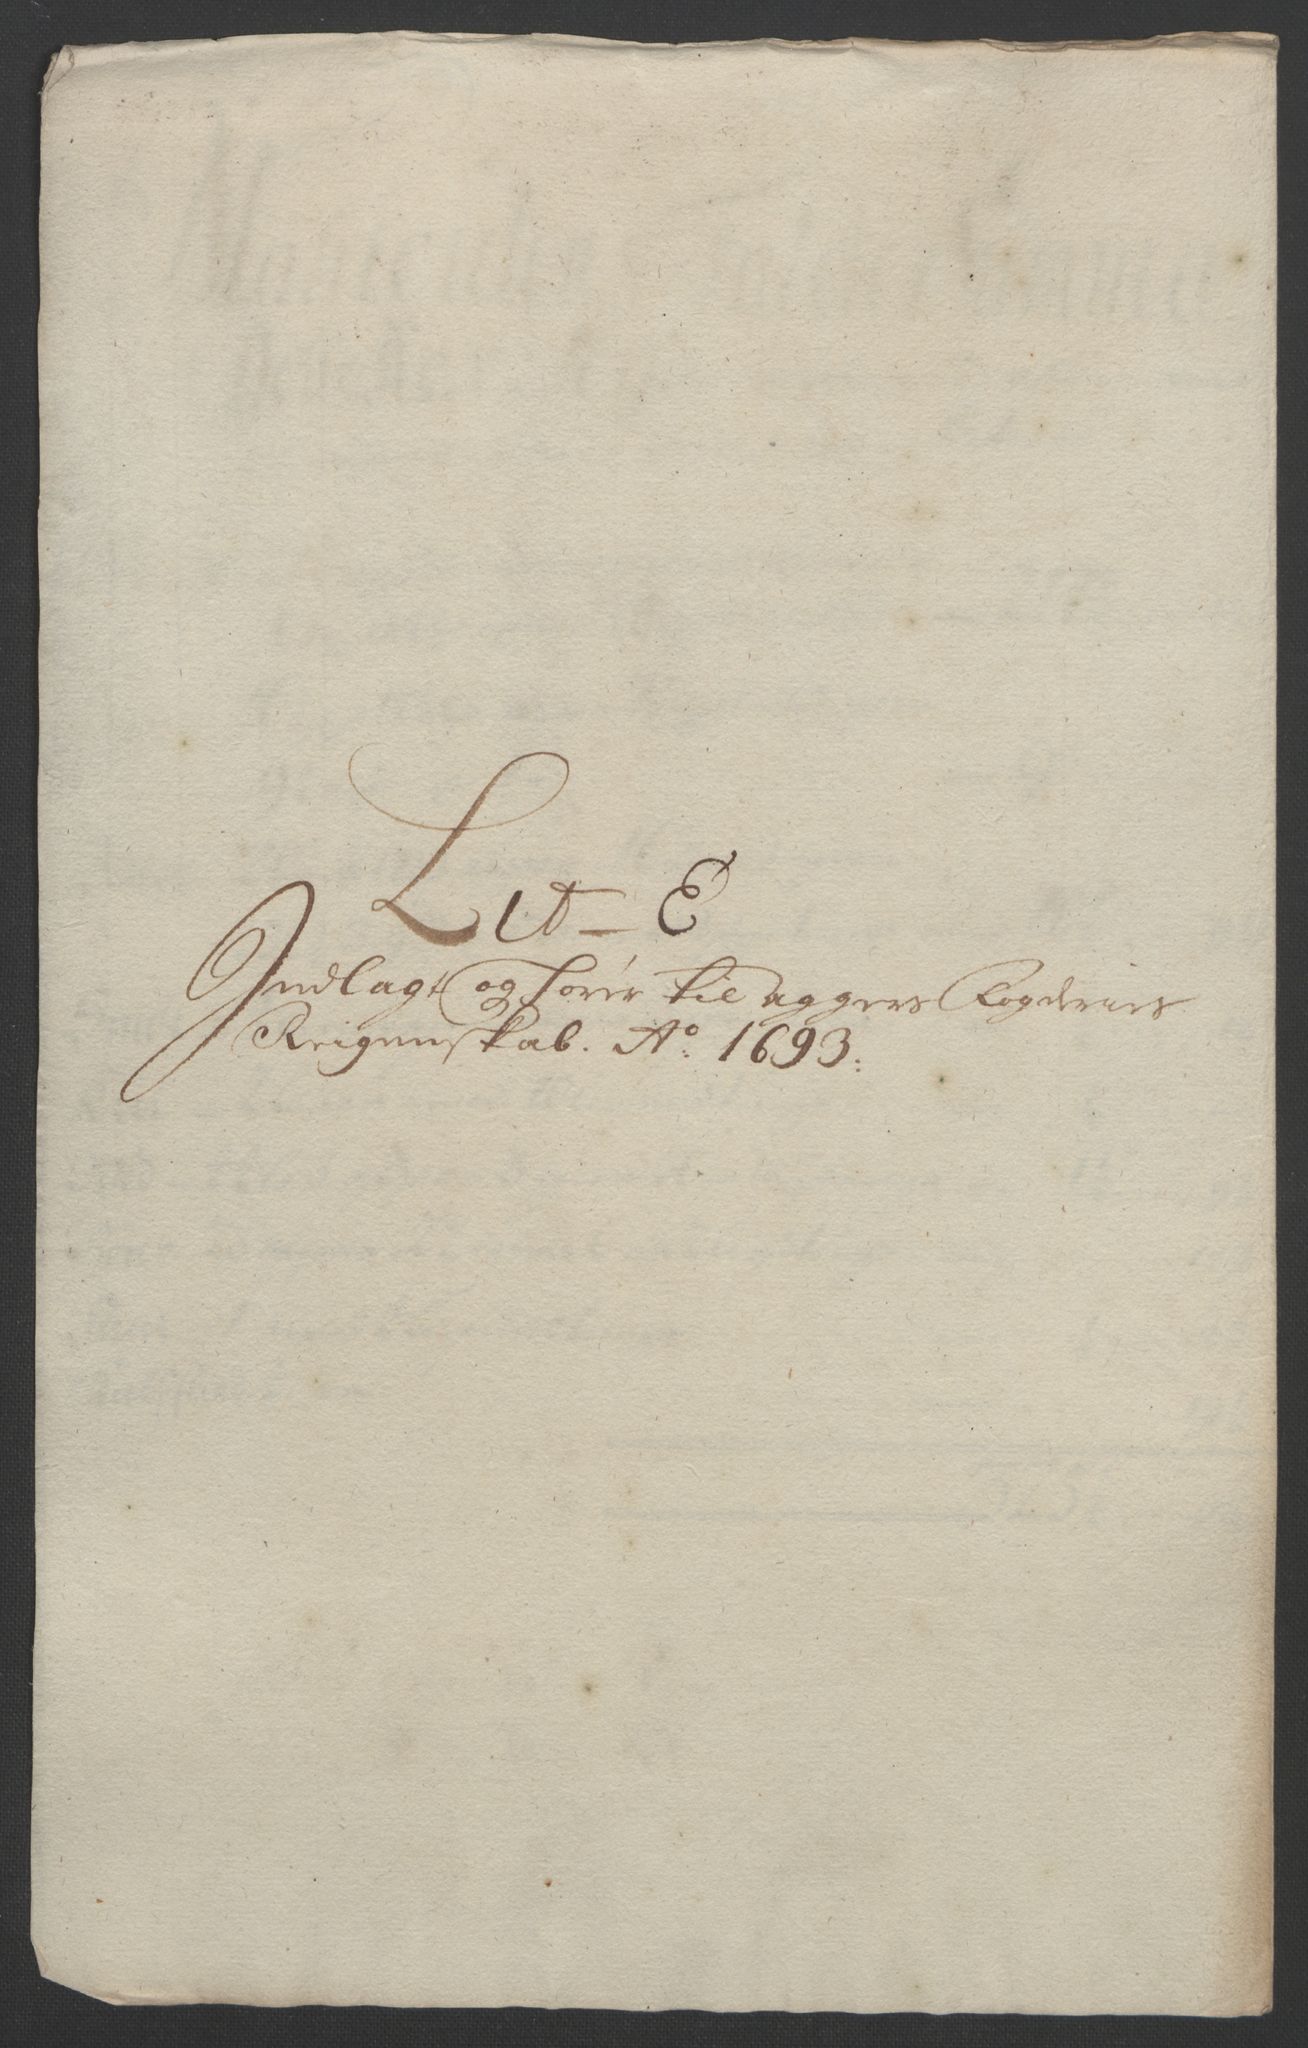 Lit – E
Indlagt og hører til aggers Fogderies
Reigenskab. Aº. 1693.